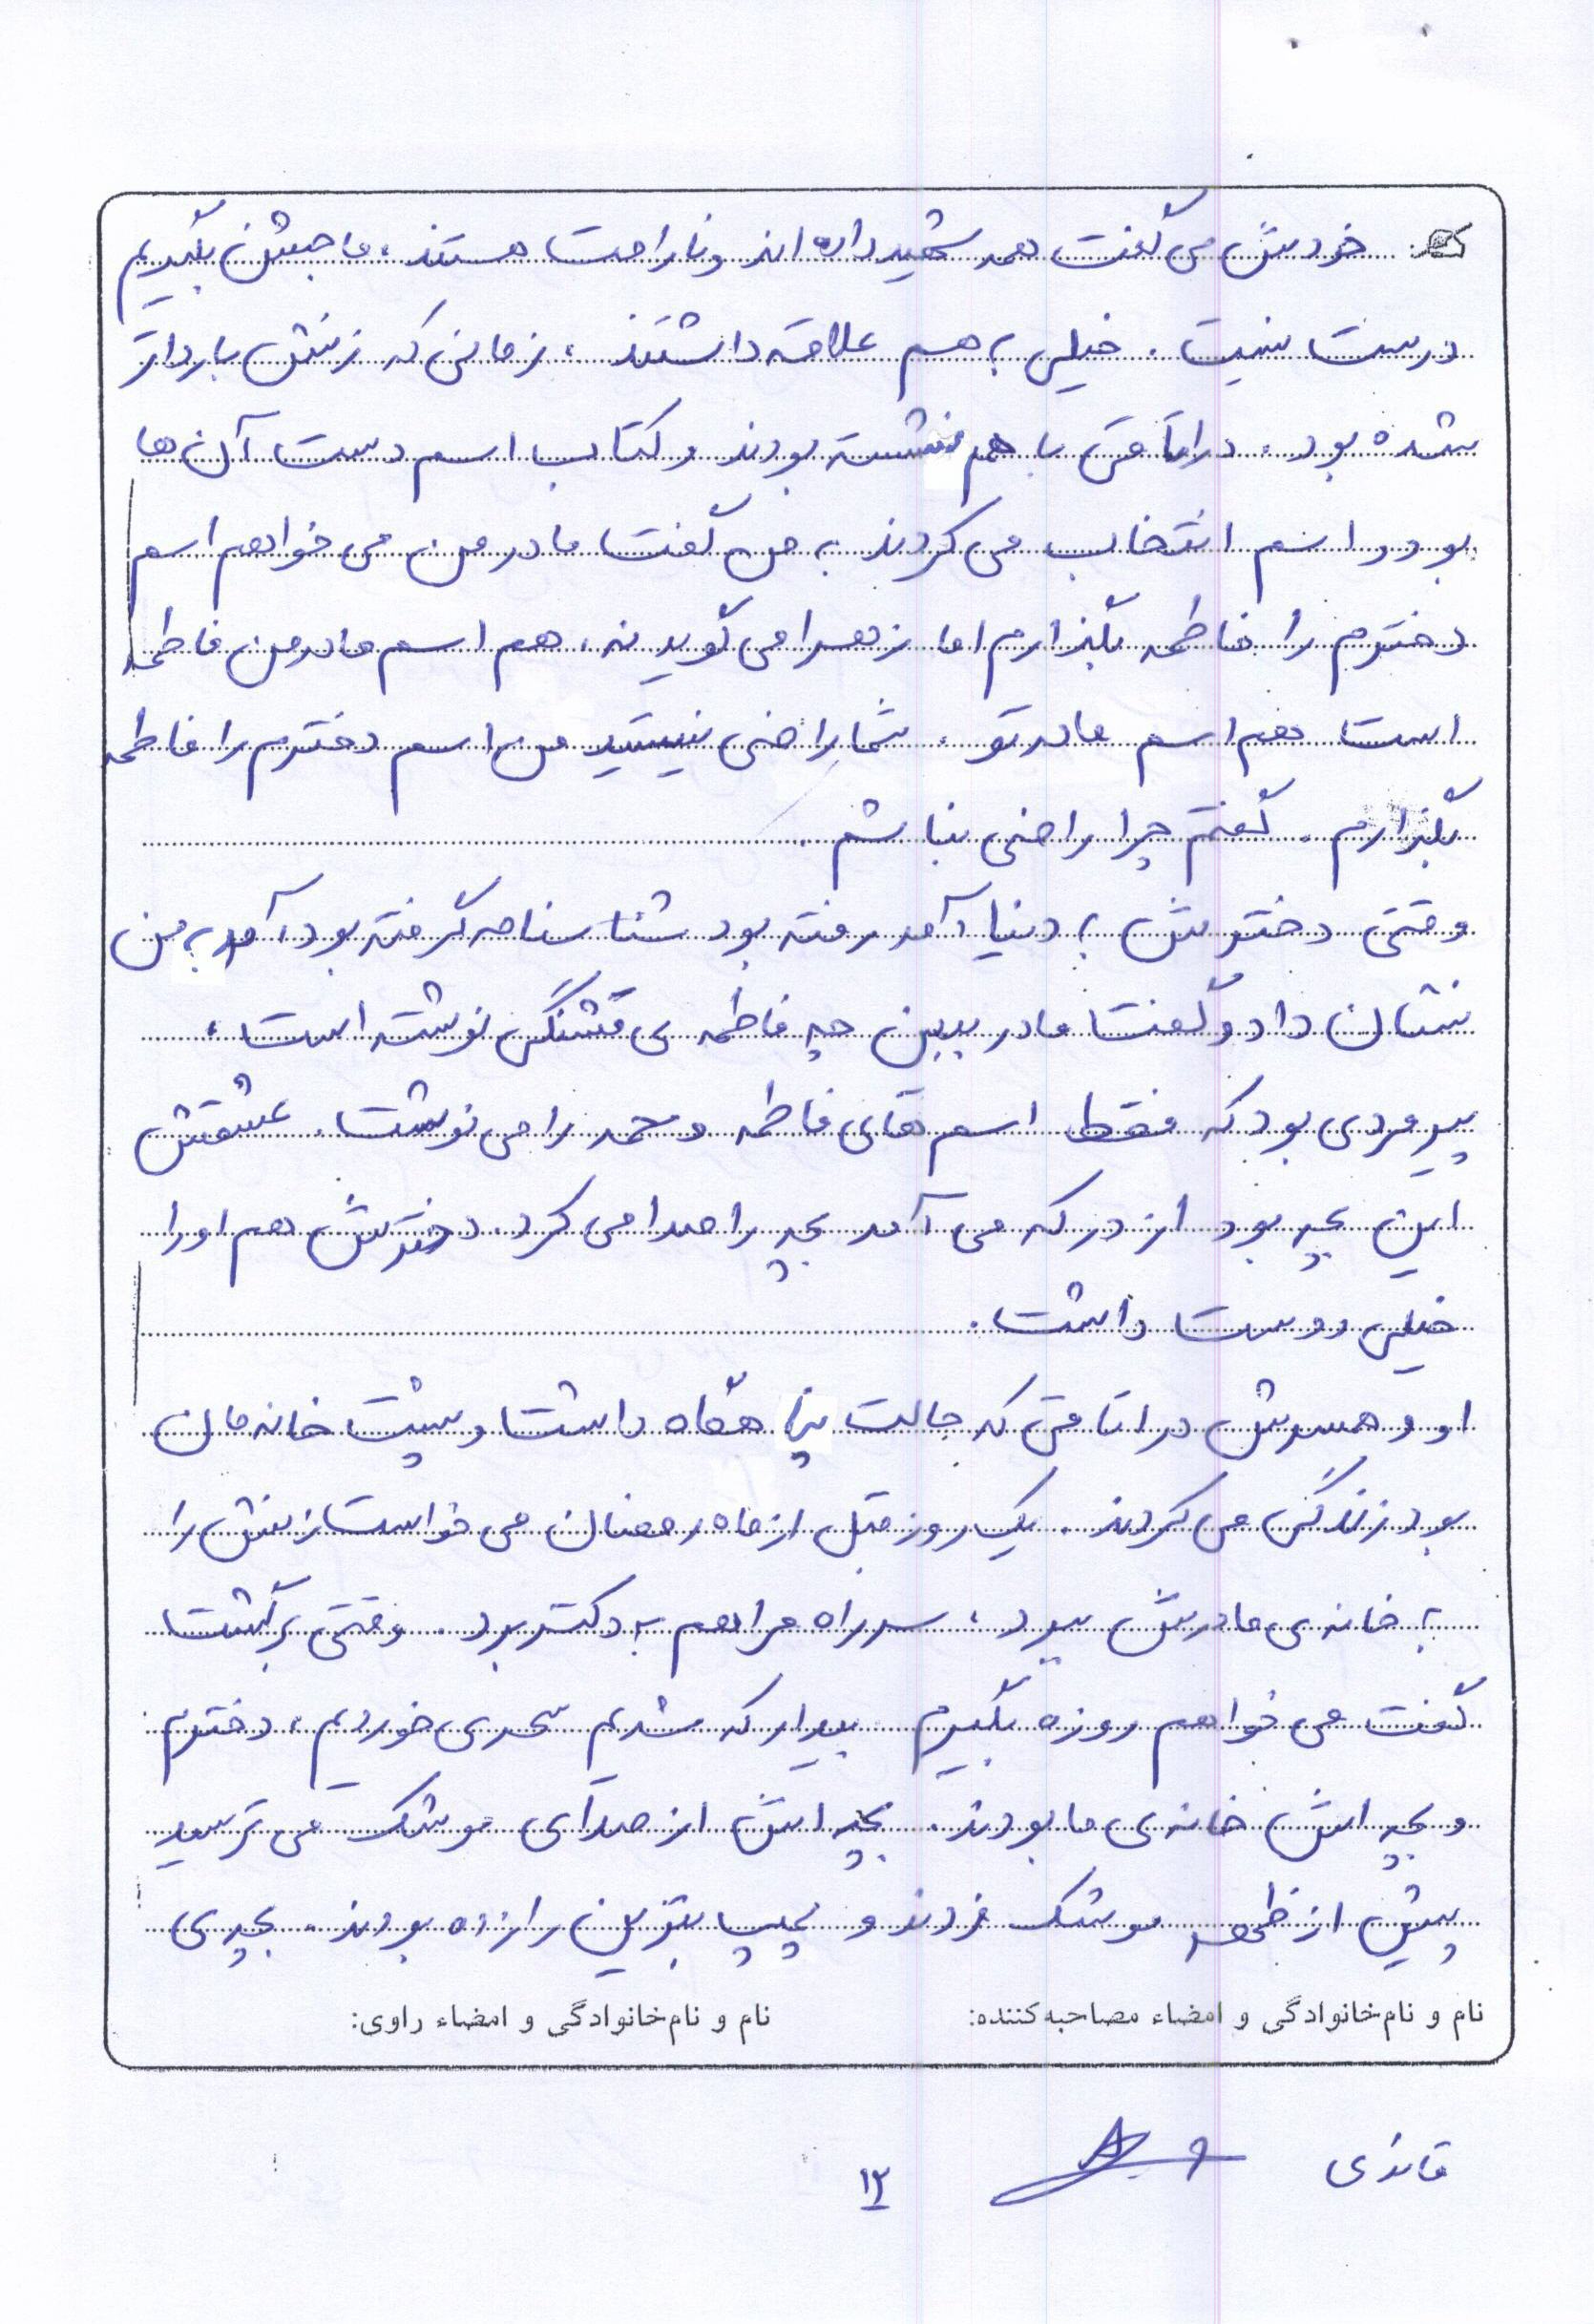 خودش می گفت همه شهید داده اند و ناراحت هستند، ما جشن بگیریم
درست نیست. خیلی به هم علاقه داشتند، زمانی که زنش باردار
شده بود، در اتاقی با هم نشسته بودند و کتاب اسم دست آن ها
بود و اسم انتخاب می کردند به من گفت مادر من می خواهم اسم
دخترم را فاطمه بگذارم اما زهرا می گوید نه، هم اسم مادر من فاطمه
است هم اسم مادر تو. شما راضی نیستید من اسم دخترم را فاطمه
بگذارم. گفتم چرا راضی نباشم.
وقتی دخترش به دنیا آمد رفته بود شناسنامه گرفته بود، آمد به من
نشان داد و گفت مادر ببین چه فاطمه ی قشنگی نوشته است،
پیرمردی بود که فقط اسم های فاطمه و محمد را می نوشت. عشقش
این بچه بود از در که می آمد بچه را صدا می کرد. دخترش هم او را
خیلی دوست داشت.
او و همسرش در اتاقی که حالت پناهگاه داشت و پشت خانه مان
بود زندگی می کردند. یک روز قبل از ماه رمضان می خواست زنش را
به خانه ی مادرش ببرد، سر راه مرا هم به دکتر برد. وقتی برگشت
گفت می خواهم روزه بگیرم بیدار که شدیم سحری خوردیم، دخترم
و بچه اش خانه ی ما بودند. بچه اش از صدای موشک می ترسید
پیش از ظهر موشک زدند و پمپ بنزین را زده بودند. بچه ی
نام و نام خانوادگی و امضاء مصاحبه کننده:
نام و نام خانوادگی و امضاء راوی:
۱۲